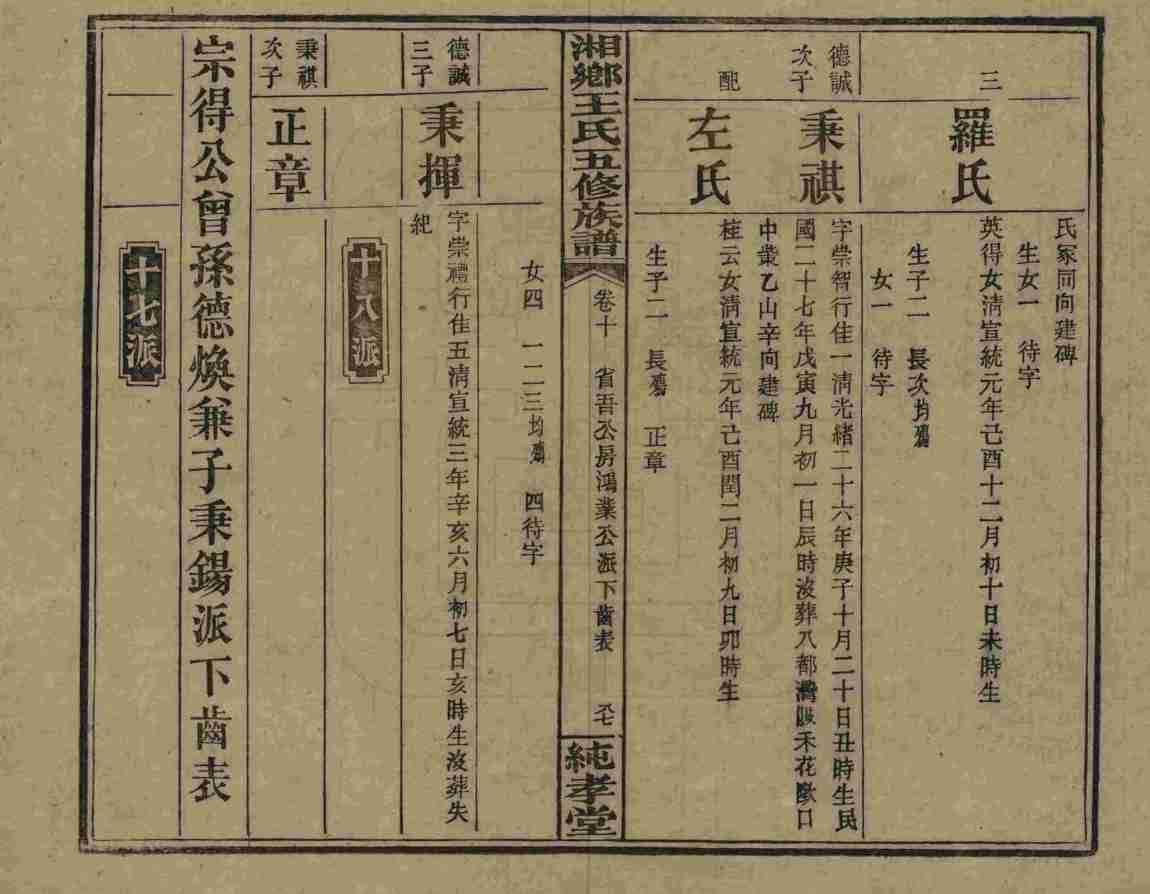 氏冢同向建碑
生女一 待字
三 羅氏 英得女清宣統元年己酉十二月初十日未時生
生子二 長次均殤
女一 待字
德誠次子 秉祺 字崇智行佳一清光緒二十六年庚子十月二十日丑時生民
國二十七年戊寅九月初一日辰時沒葬八都灣 禾花 口
中 乙山辛向建碑
配 左氏 桂云女清宣統元年己酉閏二月初九日卯時生
生子二 長殤 正章
湘鄉王氏五修族譜 卷十 省吾公房鴻業公派下齒表 純孝堂
女四 一二三均殤 四待字
德誠三子 秉揮 字崇禮行佳五清宣統三年辛亥六月初七日亥時生沒葬失
紀
十八派
秉祺次子 正章
宗得公曾孫德煥兼子秉錫派下齒表
十七派